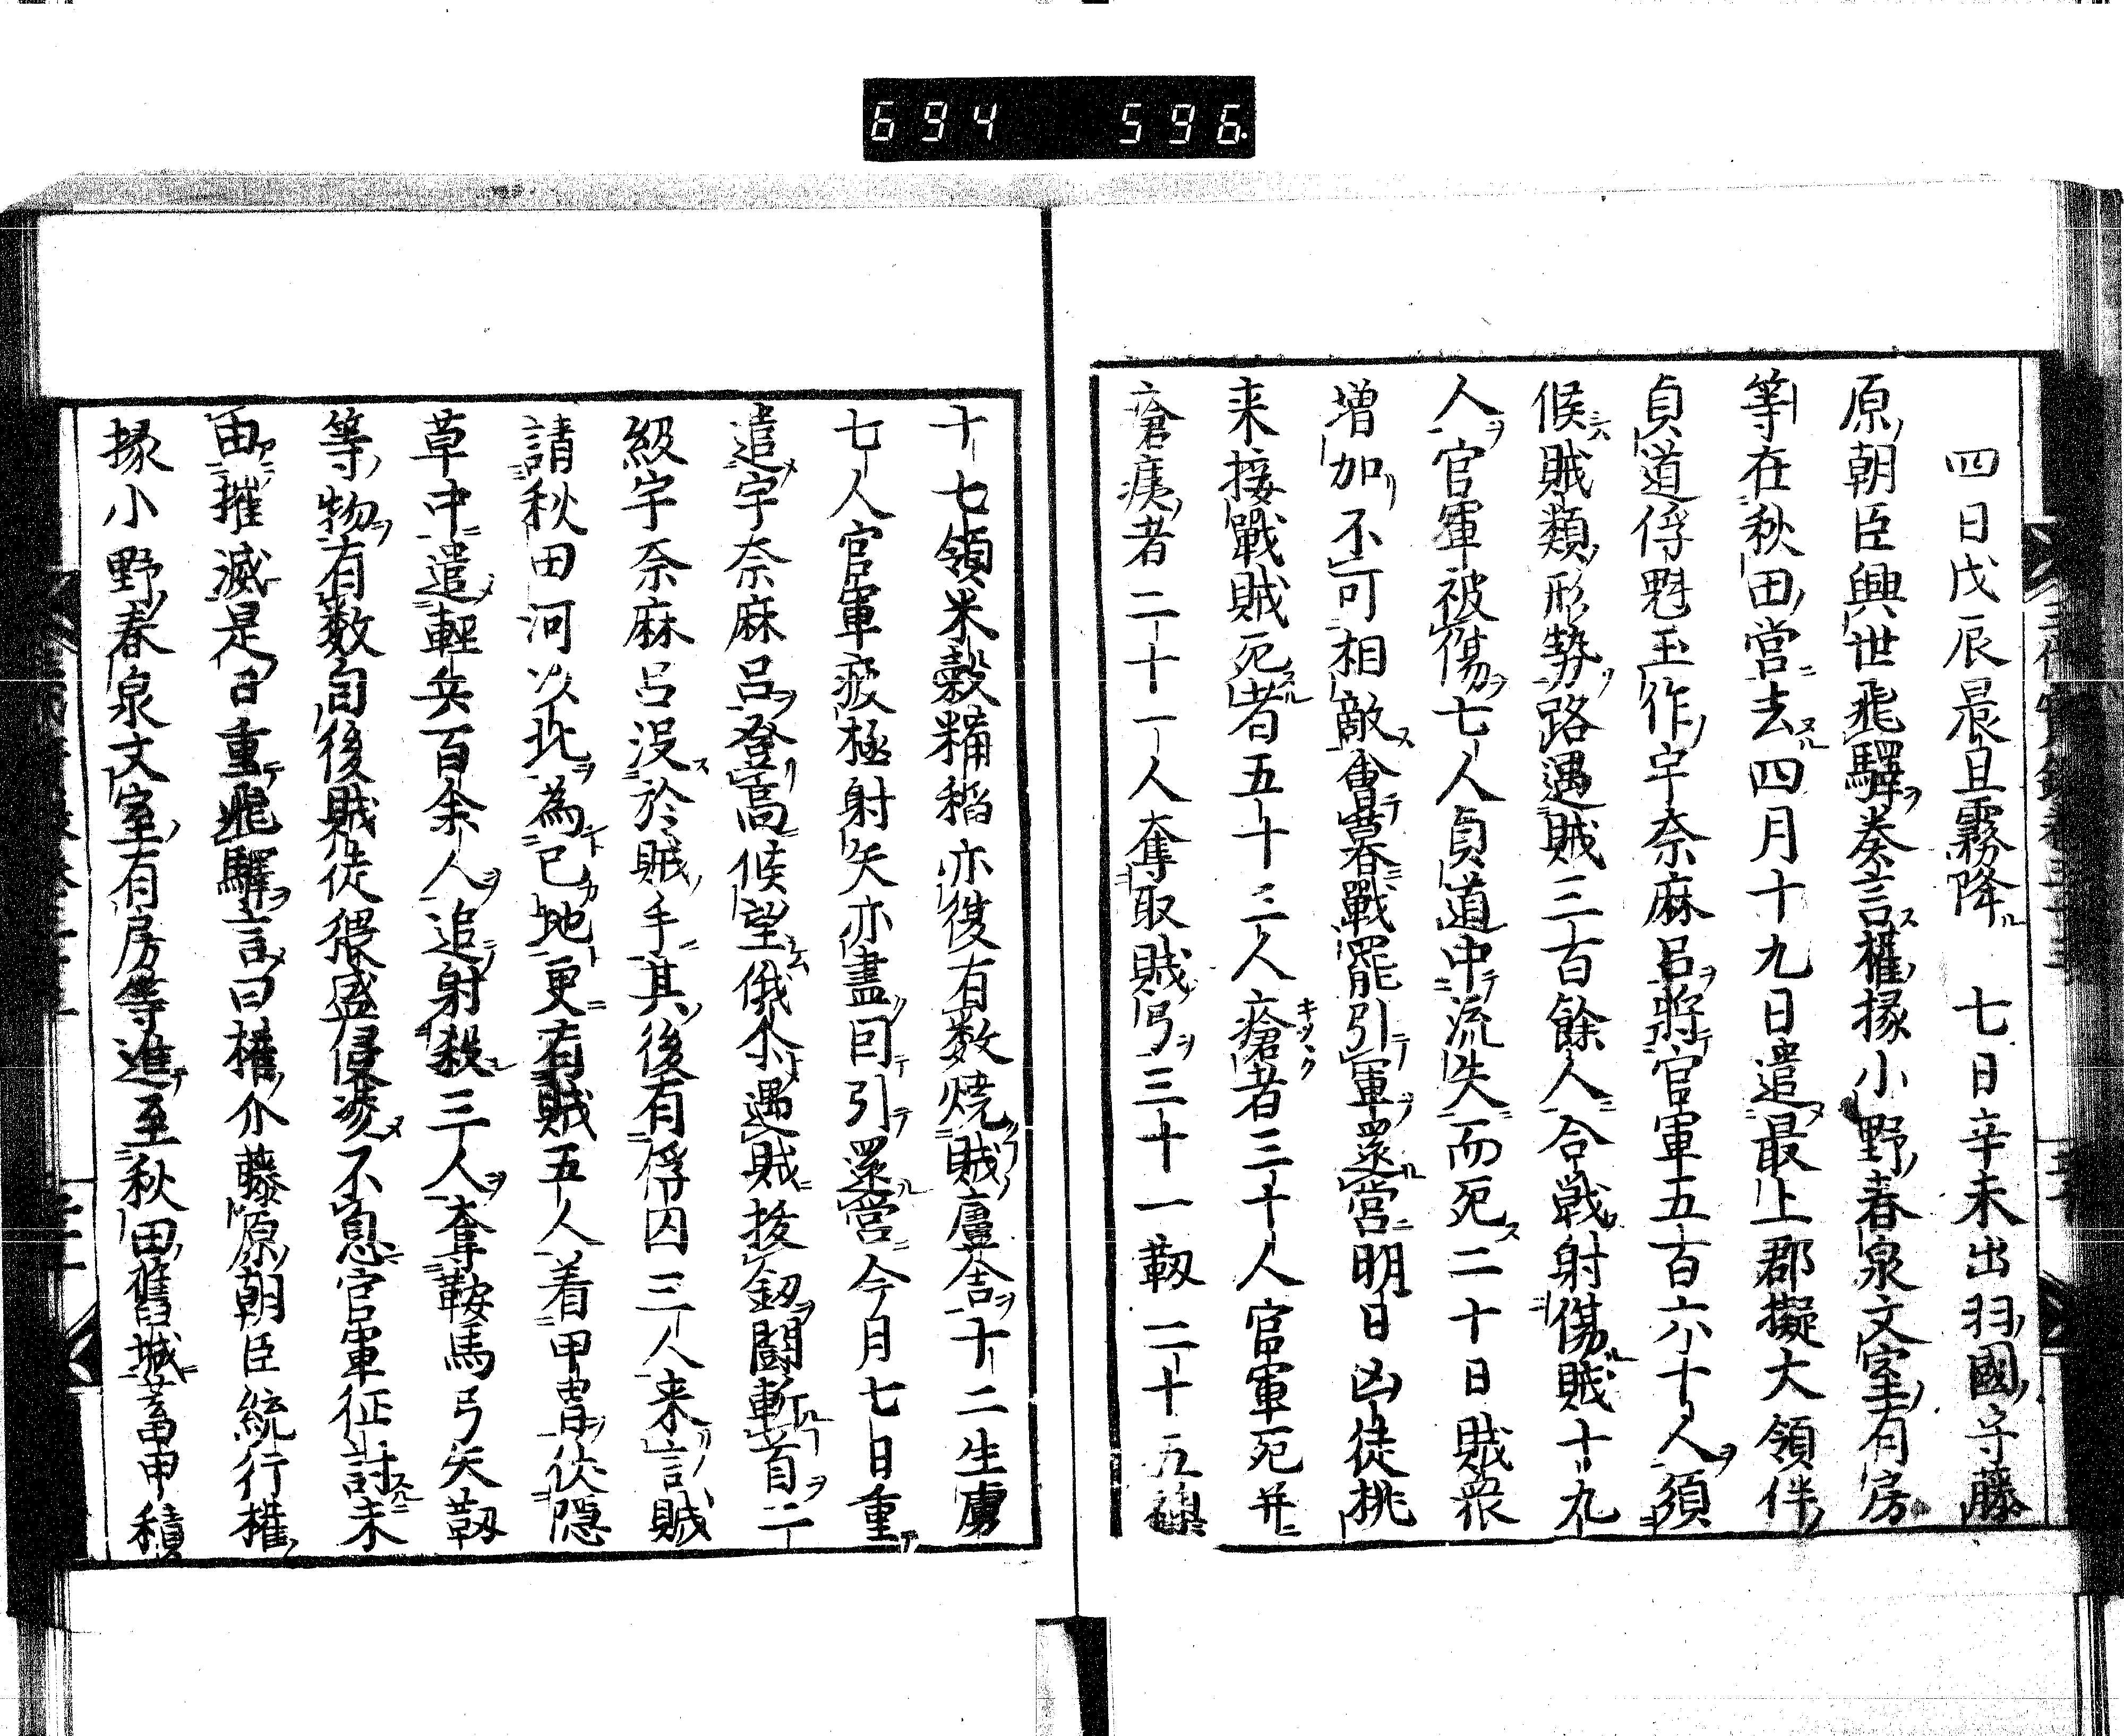 694 596.
四日戊辰晨且霧降 七日辛未出羽國守藤
原朝臣興世飛驛奏言權掾小野春泉文室有房
等在秋田営去四月十九日遣最上郡擬大領伴
貞道俘魁玉作宇奈麻呂將官軍五百六十人須
候賊類形勢路遇賊三百餘人合戦射傷賊十九
人官軍被傷七人貞道中流失而死二十日賊衆
増加不可相敵會暮戰罷引軍還営明日凶徒挑
来接戰賊死者五十三人瘡者三十人官軍死并
瘡痍者二十一人奪取賊弓三十一靫二十五
十七領米穀糒稻亦復有数焼賊廬舎十二生虜
七人官軍疲極射矢亦盡引還営今月七日重
遣宇奈麻呂登高候望俄尓遇賊拔釼闘斬首二
級宇奈麻呂没於賊手其後有俘囚三人来言賊
請秋田河以北為已地更有賊五人着甲冑伏隠
草中遣輕兵百余人追射殺三人奪鞍馬弓矢靫
等物有数自後賊徒猥盛侵凌不息官軍征討未
由摧滅是日重飛驛言曰權介藤原朝臣統行權
掾小野春泉文室有房等進至秋田舊城蓄甲積